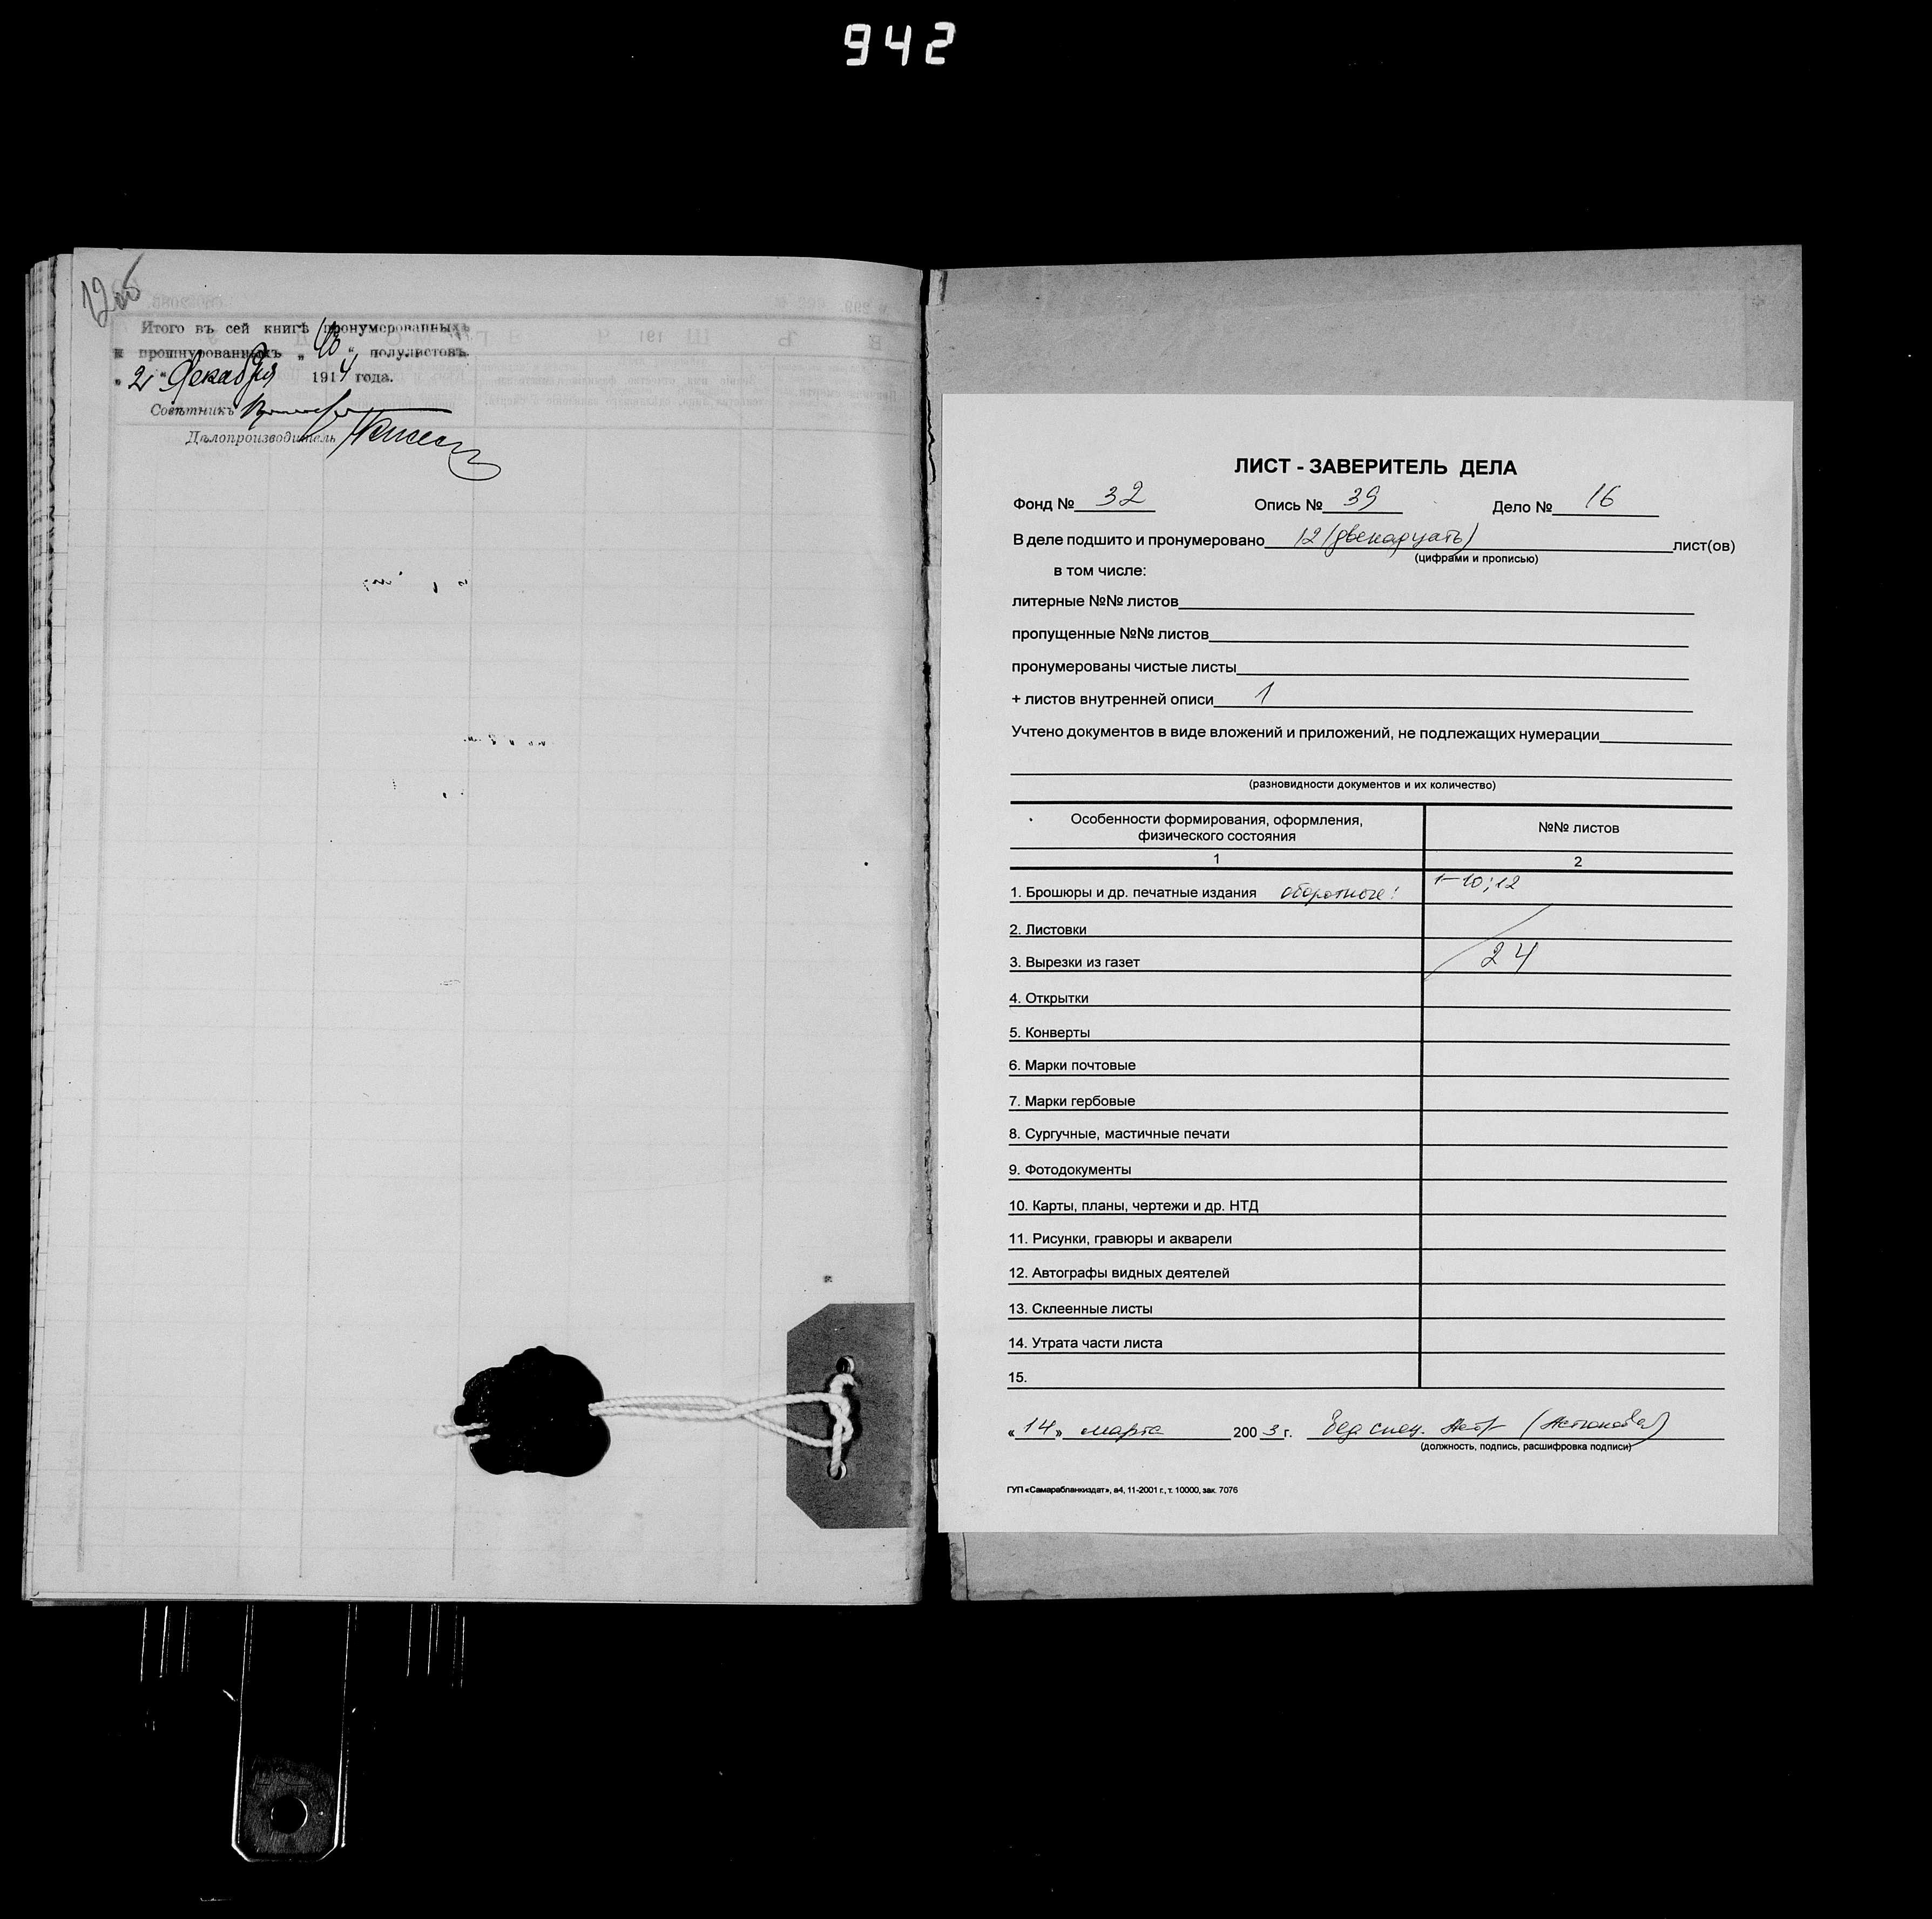 942
12об
Итого въ сей книгѣ пронумерованныхъ
и прошнурованныхъ „ “ полулистовъ.
„ 2 “ Декабря 1914 года.
Совѣтникъ
Дѣлопроизводитель
ЛИСТ - ЗАВЕРИТЕЛЬ ДЕЛА
Фонд № 32 Опись № 39 Дело № 16
В деле подшито и пронумеровано 12 (двенадцать) лист(ов)
(цифрами и прописью)
в том числе:
литерные №№ листов
пропущенные №№ листов
пронумерованы чистые листы
+ листов внутренней описи 1
Учтено документов в виде вложений и приложений, не подлежащих нумерации
(разновидности документов и их количество)
Особенности формирования, оформления, №№ листов
физического состояния
1 2
1. Брошюры и др. печатные издания оборотные: 1-10; 12
2. Листовки
3. Вырезки из газет 24
4. Открытки
5. Конверты
6. Марки почтовые
7. Марки гербовые
8. Сургучные, мастичные печати
9. Фотодокументы
10. Карты, планы, чертежи и др. НТД
11. Рисунки, гравюры и акварели
12. Автографы видных деятелей
13. Склеенные листы
14. Утрата части листа
15.
« 14 » марта 200 3 г. Вед спец.
(должность, подпись, расшифровка подписи)
ГУП «Самарабланкиздат», а4, 11-2001 г., т. 10000, зак. 7076